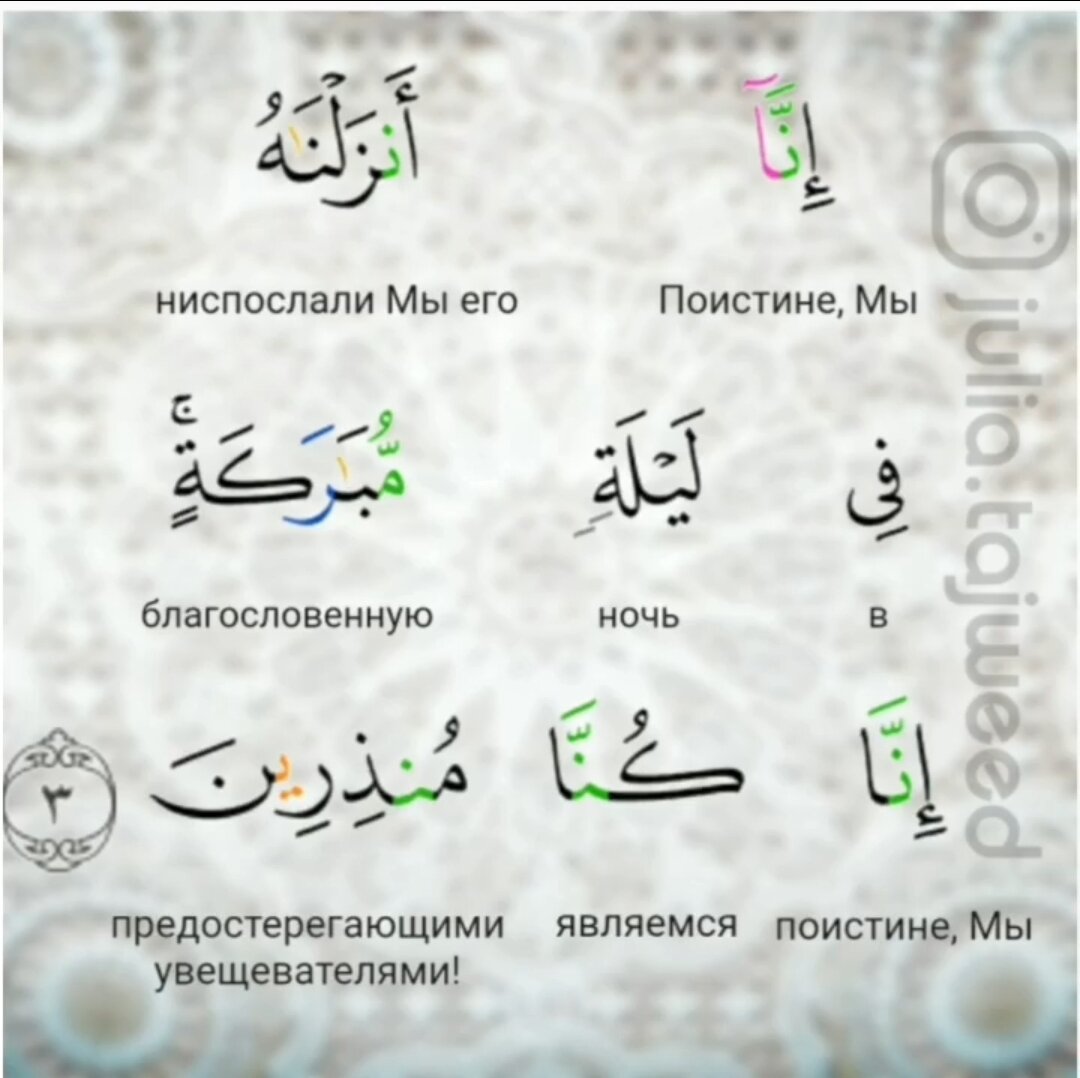 إِنَّآ أَنزَلْنَٰهُ
Поистине, Мы ниспослали Мы его
فِى لَيْلَةٍ مُّبَٰرَكَةٍ ۚ
в ночь благословенную
إِنَّا كُنَّا مُنذِرِينَ ٣
поистине, Мы являемся предостерегающими
увещевателями!
julia.tajweed